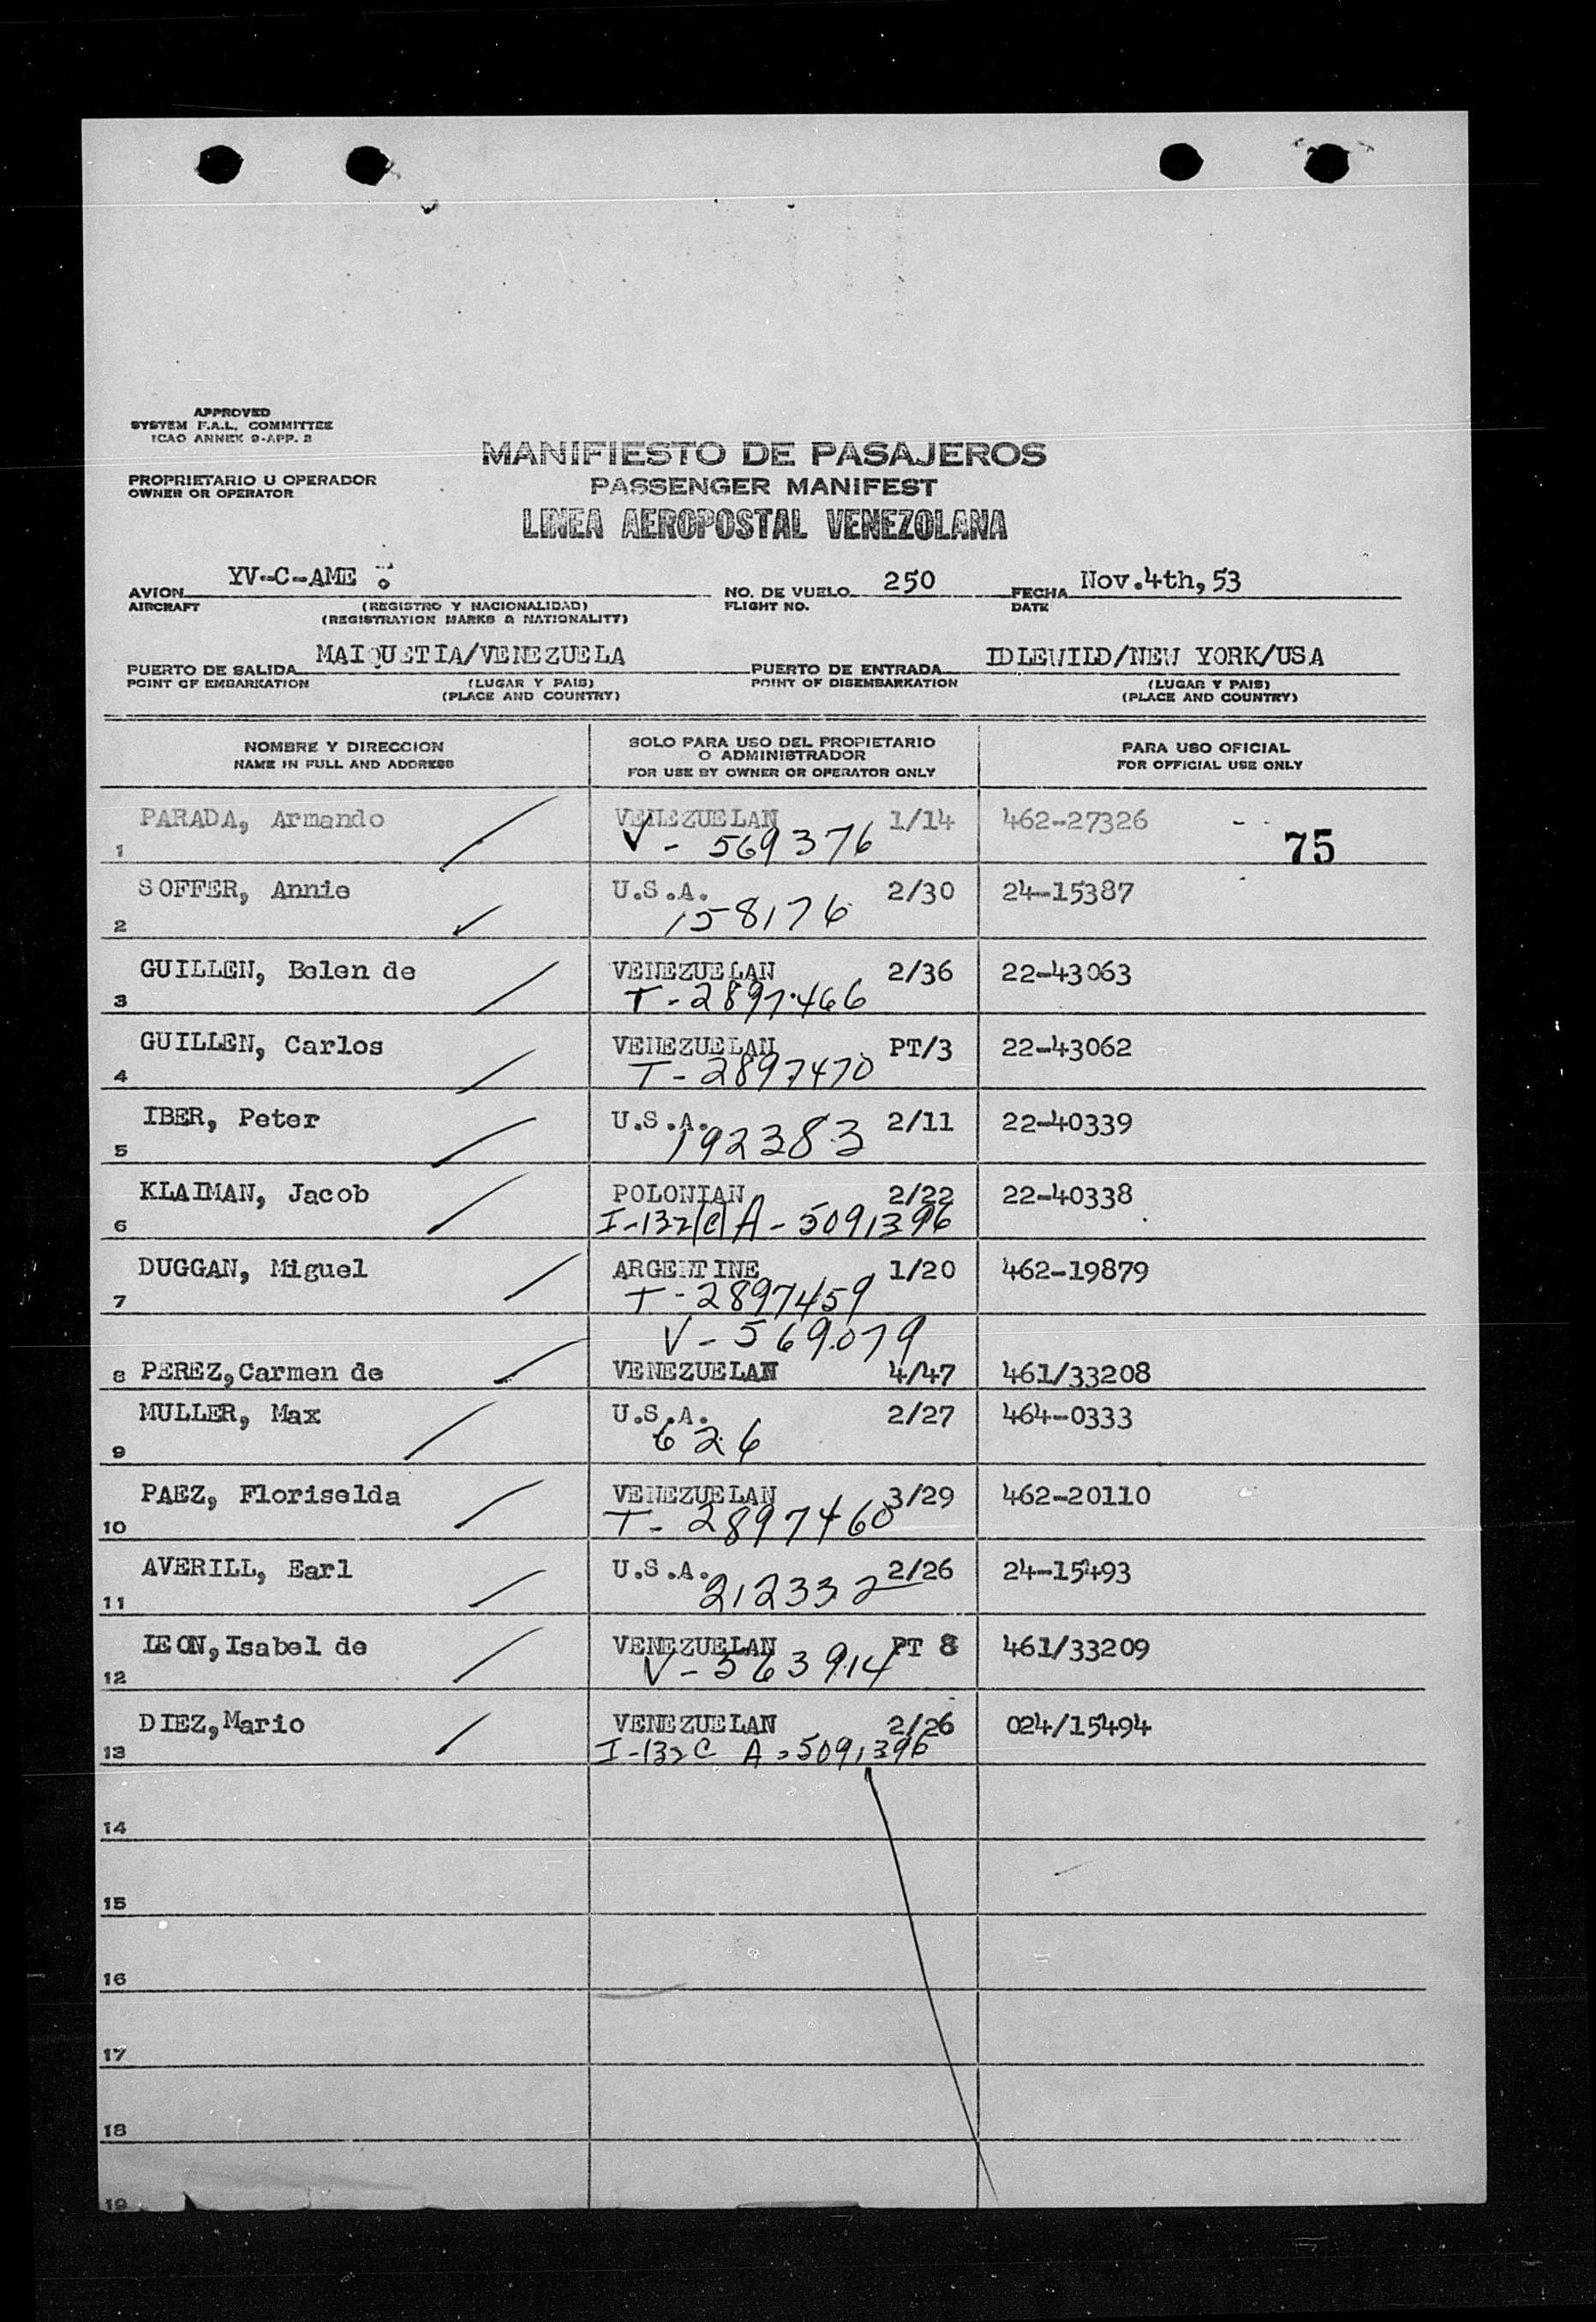 APPROVED
SYSTEM F.A.L. COMMITTEE
ICAO ANNEX 9-APP. 2
MANIFIESTO DE PASAJEROS
PROPRIETARIO U OPERADOR
OWNER OR OPERATOR
PASSENGER MANIFEST
LINEA AEROPOSTAL VENEZOLANA
AVION YV-C-AME NO. DE VUELO 250 FECHA Nov.4th,53
AIRCRAFT (REGISTRO Y NACIONALIDAD) FLIGHT NO. DATE
(REGISTRATION MARKS & NATIONALITY)
PUERTO DE SALIDA MAIQUETIA/VENEZUELA PUERTO DE ENTRADA IDLEWILD/NEW YORK/USA
POINT OF EMBARKATION (LUGAR Y PAIS) POINT OF DISEMBARKATION (LUGAR Y PAIS)
(PLACE AND COUNTRY) (PLACE AND COUNTRY)
NOMBRE Y DIRECCION
NAME IN FULL AND ADDRESS
SOLO PARA USO DEL PROPIETARIO
O ADMINISTRADOR
FOR USE BY OWNER OR OPERATOR ONLY
PARA USO OFICIAL
FOR OFFICIAL USE ONLY
PARADA, Armando VENEZUELAN 1/14 462-27326
1 V - 569376 75
SOFFER, Annie U.S.A. 2/30 24-15387
2 158176
GUILLEN, Belen de VENEZUELAN 2/36 22-43063
3 T-2897466
GUILLEN, Carlos VENEZUELAN PT/3 22-43062
4 T-2897470
IBER, Peter U.S.A. 2/11 22-40339
5 192383
KLAIMAN, Jacob POLONIAN 2/22 22-40338
6 I-132(C) A-5091396
DUGGAN, Miguel ARGENTINE 1/20 462-19879
7 T-2897459
V-569079
8 PEREZ,Carmen de VENEZUELAN 4/47 461/33208
MULLER, Max U.S.A. 2/27 464-0333
9 626
PAEZ, Floriselda VENEZUELAN 3/29 462-20110
10 T-2897460
AVERILL, Earl U.S.A. 2/26 24-15493
11 212332
LEON,Isabel de VENEZUELAN PT 8 461/33209
12 V-563914
DIEZ,Mario VENEZUELAN 2/26 024/15494
13 I-132C A-5091396
14
15
16
17
18
19